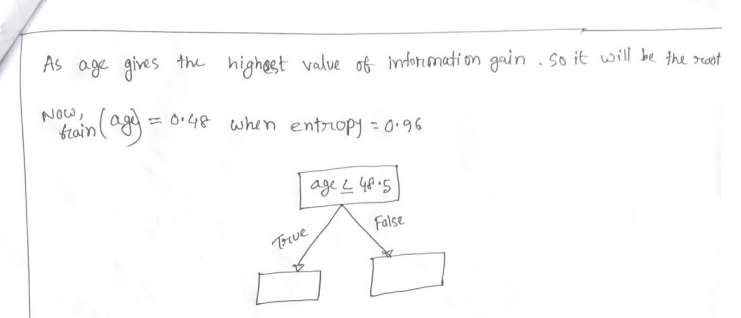 As age gives the highest value of information gain. So it will be the root
Now,
Gain(age) = 0.48 when entropy = 0.96
age ≤ 48.5
True
False